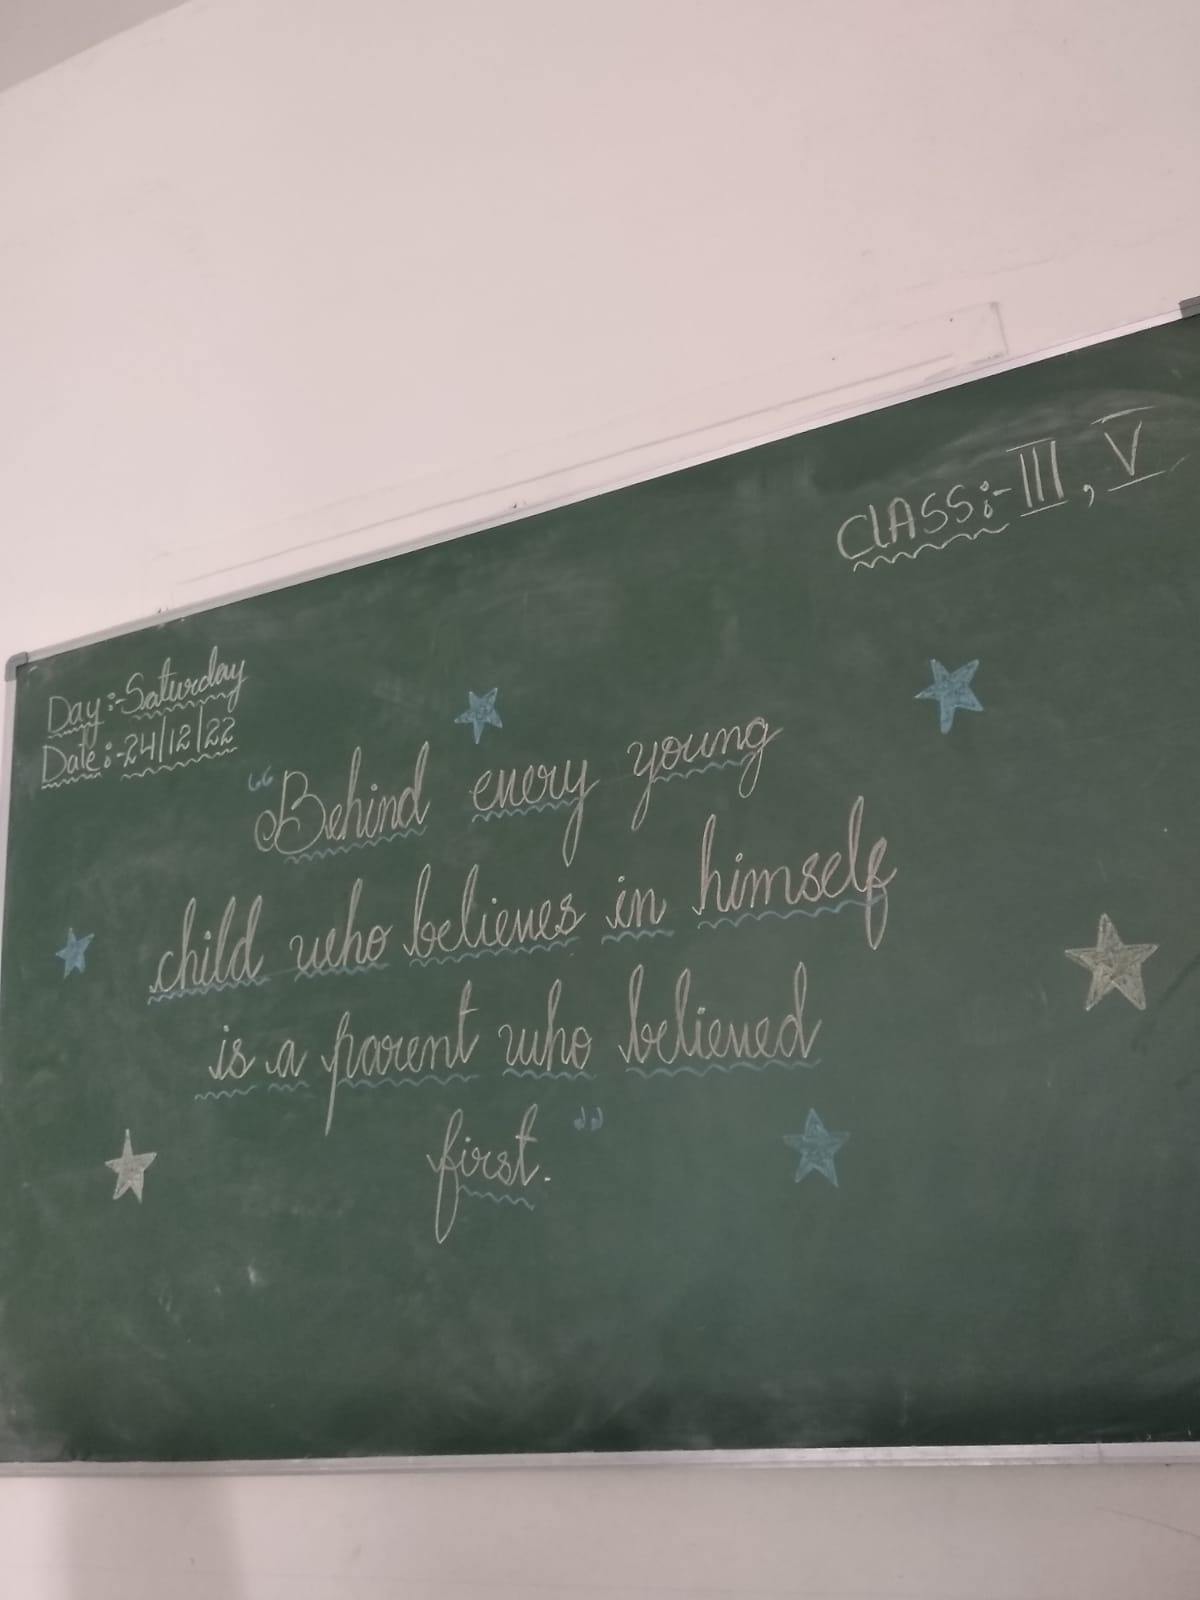 CLASS:- III, V
Day:- Saturday
Date:- 24/12/22
"Behind every young
child who believes in himself
is a parent who believed
first."